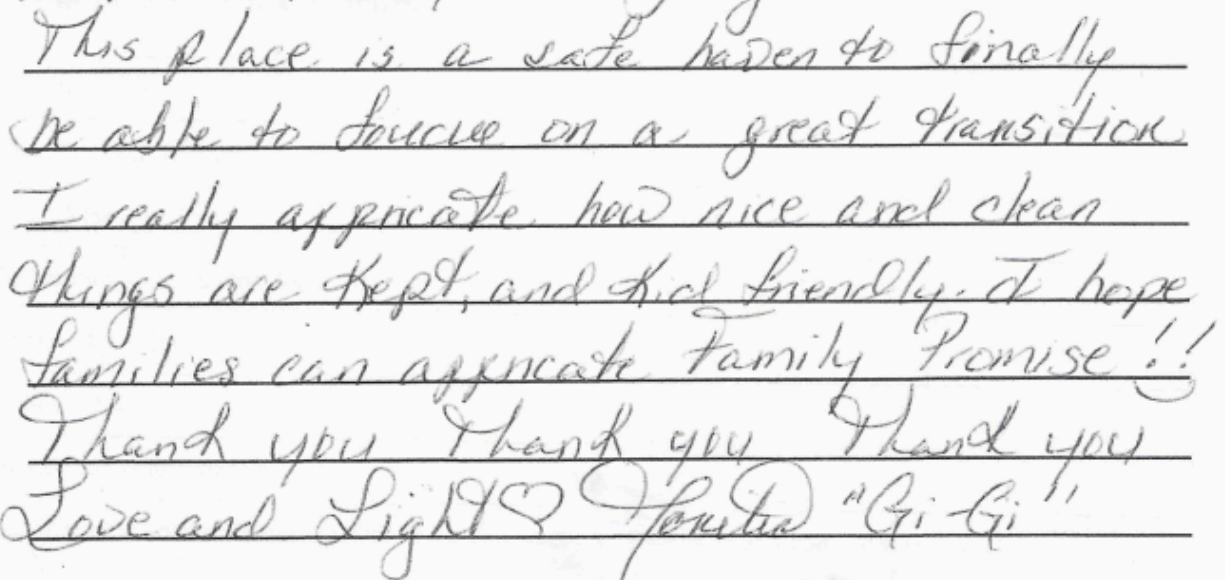 This place is a safe haven to finally
be able to foucus on a great transition
I really appricate how nice and clean
things are kept, and kid friendly. I hope
families can appricate Family Promise!!
Thank you Thank you Thank you
Love and Light♡ "Gi-Gi"